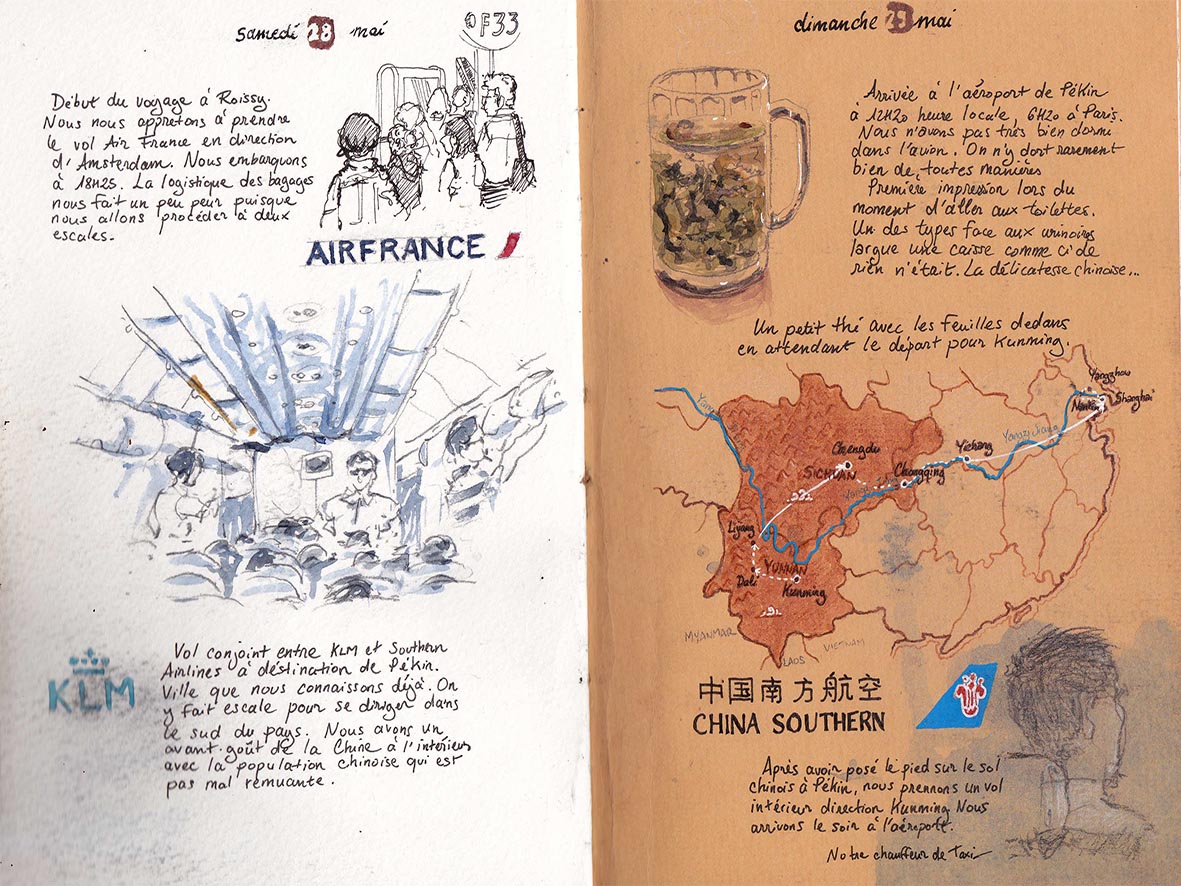 samedi 28 mai
F33
Début du voyage à Roissy.
Nous nous appretons à prendre
le vol Air France en direction
d'Amsterdam. Nous embarquons
à 18H25. La logistique des bagages
nous fait un peu peur puisque
nous allons procéder à deux
escales.
AIRFRANCE
KLM
Vol conjoint entre KLM et Southern
Airlines à déstination de Pékin.
Ville que nous connaissons déjà. On
y fait escale pour se diriger dans
le sud du pays. Nous avons un
avant-goût de la Chine à l'intérieur
avec la population chinoise qui est
pas mal remuante.
dimanche 29 mai
Arrivée à l'aéroport de Pékin
à 12H20 heure locale, 6H20 à Paris.
Nous n'avons pas très bien dormi
dans l'avion. On n'y dort rarement
bien de toutes manières
Première impression lors du
moment d'aller aux toilettes.
Un des types face aux urinoirs
largue une caisse comme ci de
rien n'était. La délicatesse chinoise...
Un petit thé avec les feuilles dedans
en attendant le départ pour Kunming.
Yangzhou
Shanghai
Nankin
Yangzi Jiang
Yichang
Chengdu
SICHUAN
Chongqing
Liyang
YUNNAN
Dali
Kunming
MYANMAR
LAOS
VIETNAM
中国南方航空
CHINA SOUTHERN
Après avoir posé le pied sur le sol
chinois à Pékin, nous prennons un vol
intérieur direction Kunming Nous
arrivons le soir à l'aéroport.
Notre chauffeur de Taxi